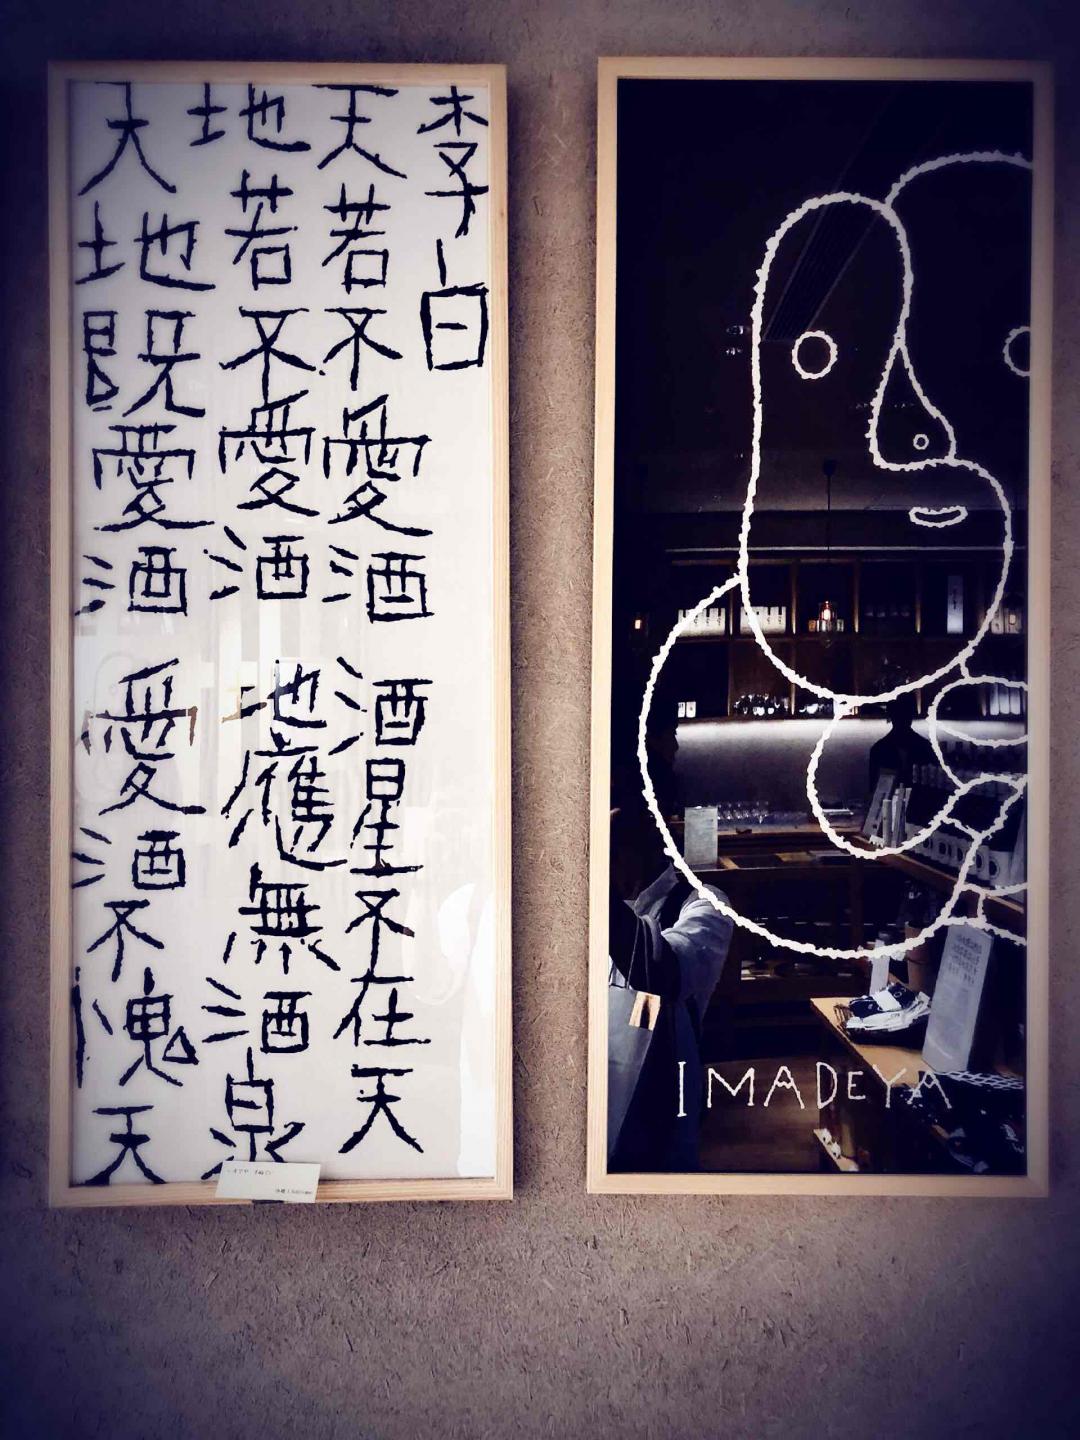 李白
天若不愛酒 酒星不在天
地若不愛酒 地應無酒泉
天地既愛酒 愛酒不愧天
IMADEYA